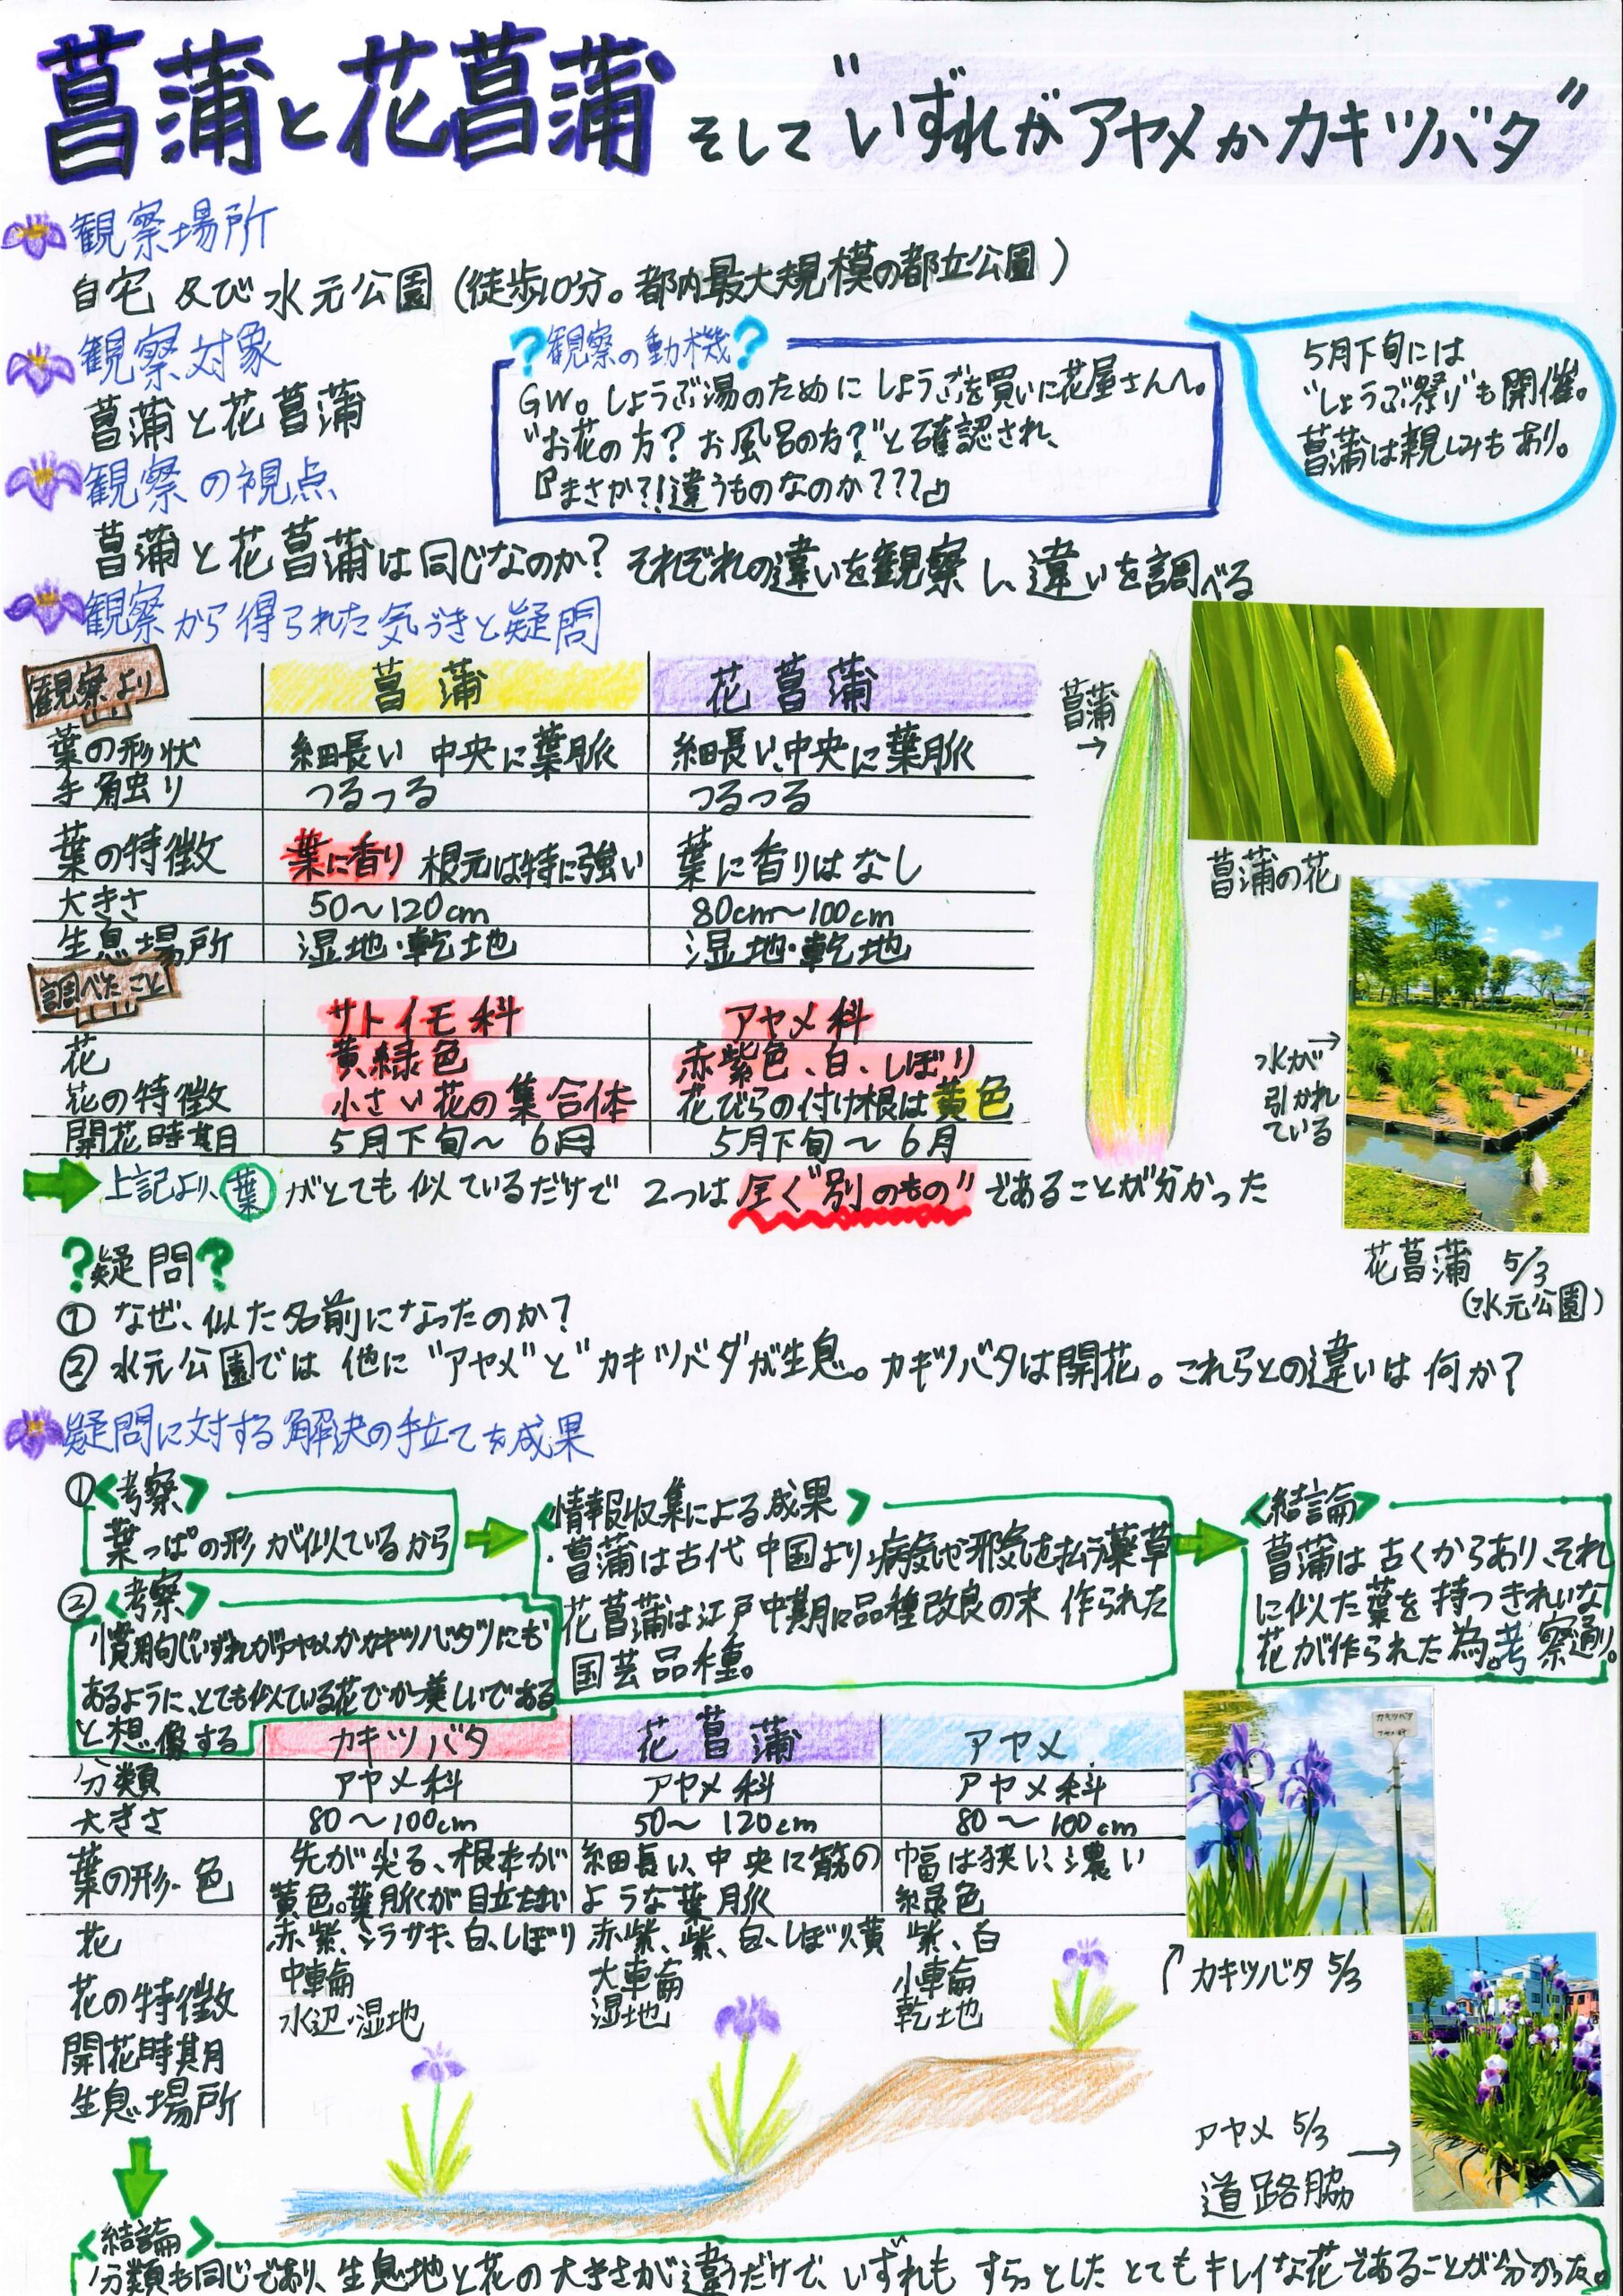 菖蒲と花菖蒲 そして"いずれがアヤメかカキツバタ"
観察場所
自宅 及び 水元公園 (徒歩10分。都内最大規模の都立公園)
観察対象
菖蒲と花菖蒲
?観察の動機?
GW。しょうぶ湯のために しょうぶを買いに花屋さんへ。
"お花の方? お風呂の方?"と確認され、
『まさか?!違うものなのか???』
5月下旬には
"しょうぶ祭り"も開催。
菖蒲は親しみもあり。
観察の視点
菖蒲と花菖蒲は同じなのか? それぞれの違いを観察し、違いを調べる
観察から得られた気づきと疑問
観察より 菖蒲 花菖蒲
葉の形状 細長い 中央に葉脈 細長い、中央に葉脈
手触り つるつる つるつる
葉の特徴 葉に香り 根元は特に強い 葉に香りはなし
大きさ 50〜120cm 80cm〜100cm
生息場所 湿地・乾地 湿地・乾地
調べたこと サトイモ科 アヤメ科
花 黄緑色 赤紫色、白、しぼり
花の特徴 小さい花の集合体 花びらの付け根は黄色
開花時期 5月下旬〜6月 5月下旬〜6月
菖蒲
→
菖蒲の花
水が
引かれ
ている
花菖蒲 5/3
(水元公園)
上記より、葉がとても似ているだけで 2つは全く"別のもの"であることが分かった
?疑問?
① なぜ、似た名前になったのか?
② 水元公園では 他に"アヤメ"と"カキツバタ"が生息。カキツバタは開花。これらとの違いは何か?
疑問に対する解決の手立てを成果
①<考察>
葉っぱの形が似ているから
<情報収集による成果>
・菖蒲は古代中国より病気や邪気を払う薬草
花菖蒲は江戸中期に品種改良の末 作られた
園芸品種。
<結論>
菖蒲は古くからあり、それ
に似た葉を持つきれいな
花が作られた為。考察通り。
②<考察>
慣用句「いずれがアヤメかカキツバタ」にも
あるように、とても似ている花でかつ美しいである
と想像する
カキツバタ 花菖蒲 アヤメ
分類 アヤメ科 アヤメ科 アヤメ科
大きさ 80〜100cm 50〜120cm 80〜100cm
葉の形・色 先が尖る、根本が 細長い、中央に筋の 幅は狭い、濃い
黄色。葉脈が目立たない ような葉脈 緑色
花 赤紫、ムラサキ、白、しぼり 赤紫、紫、白、しぼり、黄 紫、白
花の特徴 中輪 大車輪 小車輪
開花時期 水辺・湿地 湿地 乾地
生息場所
カキツバタ
カキツバタ 5/3
アヤメ 5/3 →
道路脇
<結論>
分類も同じであり、生息地と花の大きさが違うだけで、いずれも すらっとした とてもキレイな花であることが分かった。